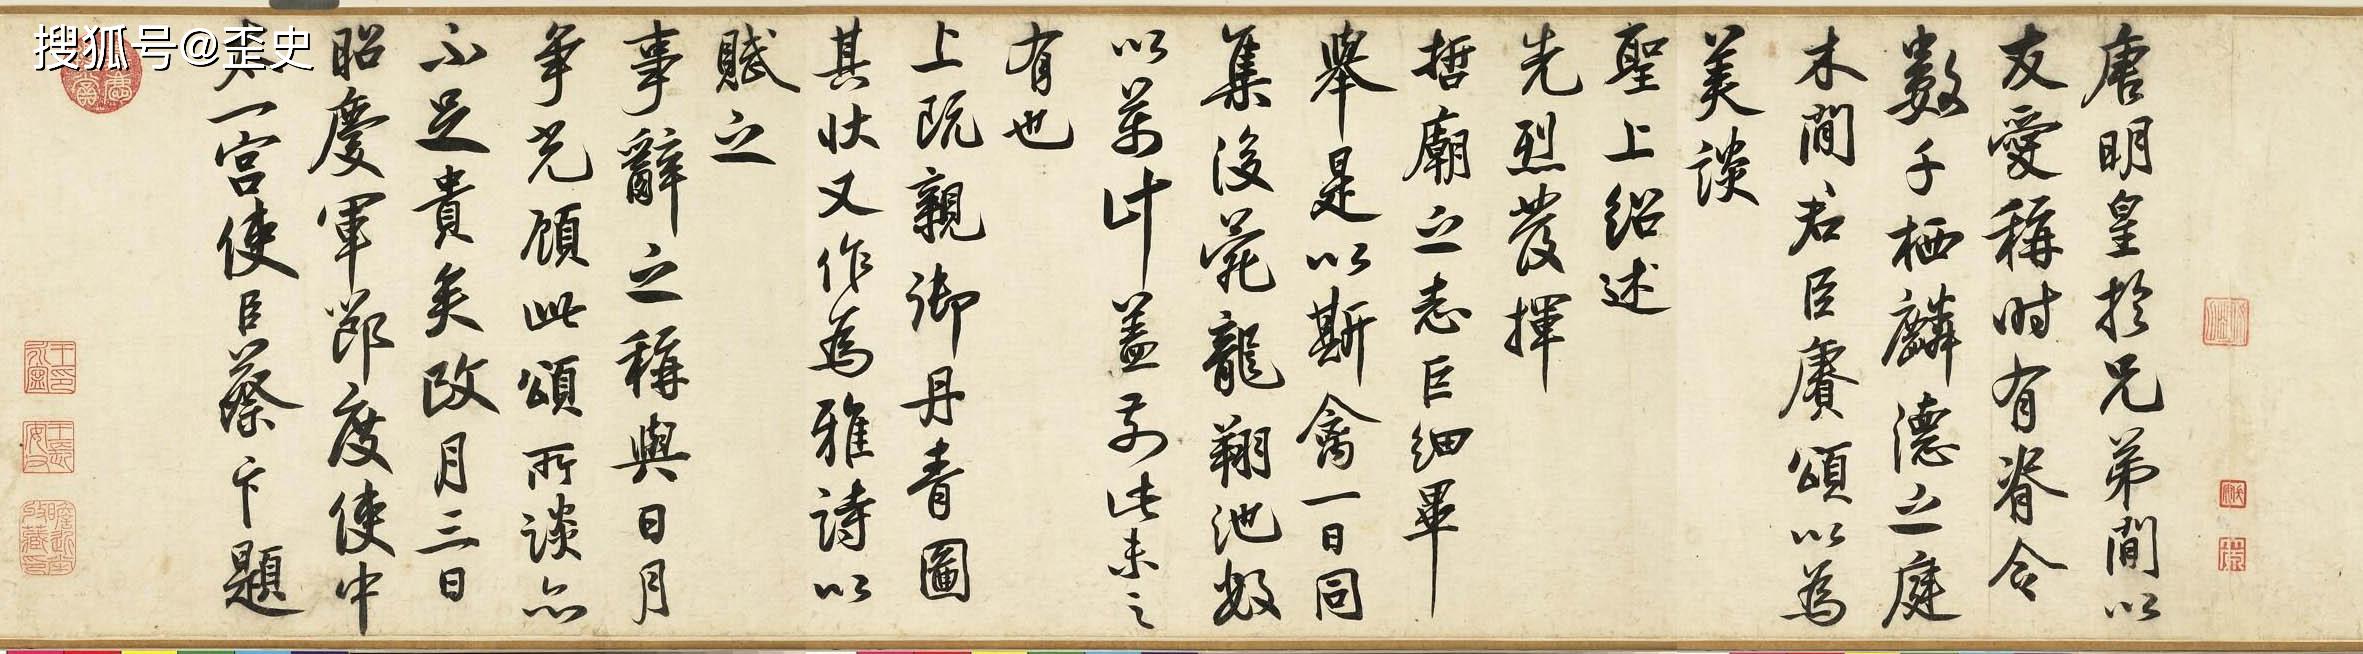 唐明皇於兄弟間以
友愛稱時有脊令
數千栖麟德之庭
木間君臣賡頌以為
美談
聖上紹述
先烈發揮
哲廟之志巨細畢
舉是以斯禽一日同
集後苑龍翔池數
以萬計蓋前此未之
有也
上既親御丹青圖
其狀又作為雅詩以
賦之
事辭之稱與日月
爭光顧此頌所談亦
不足貴矣政月三日
昭慶軍節度使中
一宮使臣蔡卞題
搜狐号@歪史